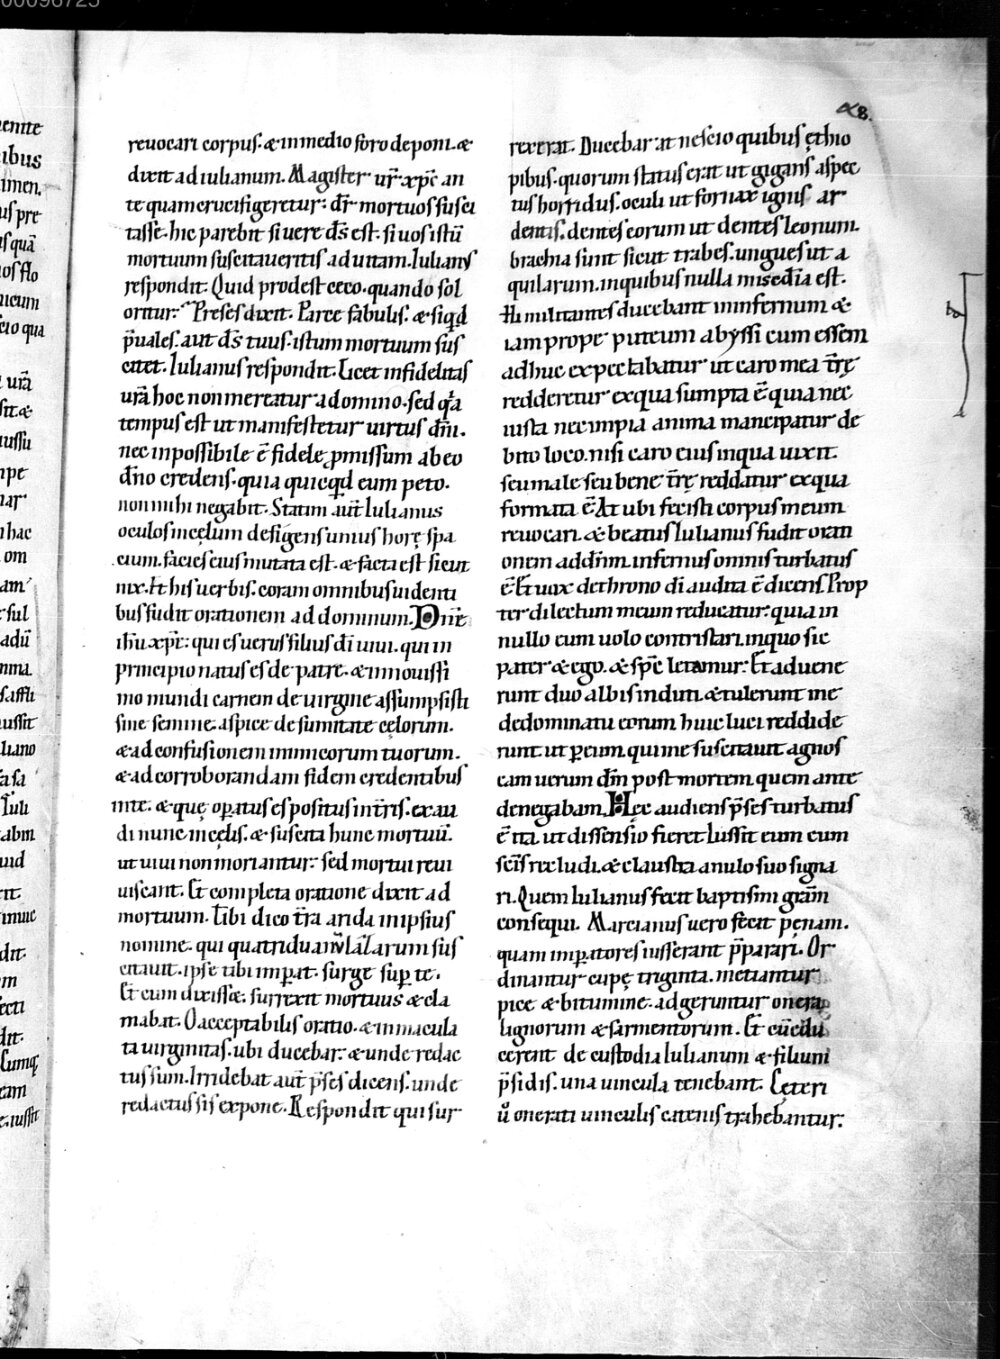 00098725
48.
reuocari corpus. & in medio foro deponi. &
dixit ad iulianum. Magister ur̄ xp̄c an
te quam crucifigeretur: dr̄ mortuos susci
tasse. hic parebit si uere d̄s est. si uos istū
mortuum suscitaueritis ad uitam. Iulianus
respondit. Quid prodest ceco. quando sol
oritur: Preses dixit. Parce fabulis. & siqd̄
p̄uales. aut d̄s tuus. istum mortuum sus
citet. Iulianus respondit. Licet infidelitas
ur̄a hoc non mereatur a domino. sed q̄a
tempus est ut manifestetur uirtus dn̄i.
nec inpossibile ē fidele p̱missum ab eo
dn̄o credens. quia quicqd̄ eum peto.
non mihi negabit. Statim aut̄ Iulianus
oculos in cęlum defigens unius horę spa
cium. facies eius mutata est. & facta est sicut
nix. Et his uerbis. coram omnibus uidenti
bus fudit orationem ad dominum. Dn̄e
ih̄u xp̄e: qui es uerus filius dī uiui. qui in
principio natus es de patre. & in nouissi
mo mundi carnem de uirgine assumpsisti
sine semine. aspice de sumitate cęlorum.
& ad confusionem inimicorum tuorum.
& ad corroborandam fidem credentibus
in te. & que op̱atus es positus in tr̄is. exau
di nunc in cęlis. & suscita hunc mortuū.
ut uiui non moriantur: sed mortui reui
uiscant. Et completa oratione dixit ad
mortuum. Tibi dico tr̄a arida in ipsius
nomine. qui quatriduanū lazarum sus
citauit. ipse tibi imp̱at. surge sup̱ te.
Et cum dixiss&. surrexit mortuus & cla
mabat. O acceptabilis oratio. & inmacula
ta uirginitas. ubi ducebar: & unde redac
tus sum. Irridebat aut̄ p̄ses dicens. unde
redactus sis expone. Respondit qui sur
rexerat. Ducebar at nescio quibus ęthio
pibus. quorum status erat ut gigans aspec
tus horridus. oculi ut fornax ignis ar
dentis. dentes eorum ut dentes leonum.
brachia sunt sicut trabes. ungues ut a
quilarum. in quibus nulla miscd̄ia est.
Hi militantes ducebant in infernum &
iam prope puteum abyssi cum essem
adhuc expectabatur ut caro mea tr̄ę
redderetur ex qua sumpta ē quia nec
iusta nec impia anima mancipatur de
bito loco. nisi caro eius in qua uixit.
seu male seu bene tr̄ę reddatur ex qua
formata ē. At ubi fecisti corpus meum
reuocari. & beatus Iulianus fudit orati
onem ad dn̄m. infernus omnis turbatus
ē. Et uox de throno dī audita ē dicens. Prop
ter dilectum meum reducatur: quia in
nullo eum uolo contristari. in quo sic
pater & ego. & sp̄c letamur: Et aduene
runt duo albis induti. & tulerunt me
de dominatu eorum huic luci reddide
runt. ut p̱ eum qui me suscitauit agnos
cam uerum dm̄ post mortem quem ante
denegabam. Hęc audiens p̄ses turbatus
ē ita ut dissensio fieret. Iussit eum cum
scīs recludi. & claustra anulo suo signa
ri. Quem Iulianus fecit baptismi gr̄am
consequi. Marcianus uero fecit penam.
quam imp̱atores iusserant p̄parari. Or
dinantur cupę triginta. metiantur
pice & bitumine. adgeruntur onera
lignorum & sarmentorum. Et cū edu
cerent de custodia Iulianum & filium
p̄sidis. una uincula tenebant. Cęteri
ū onerati uinculis catenis trahebantur.